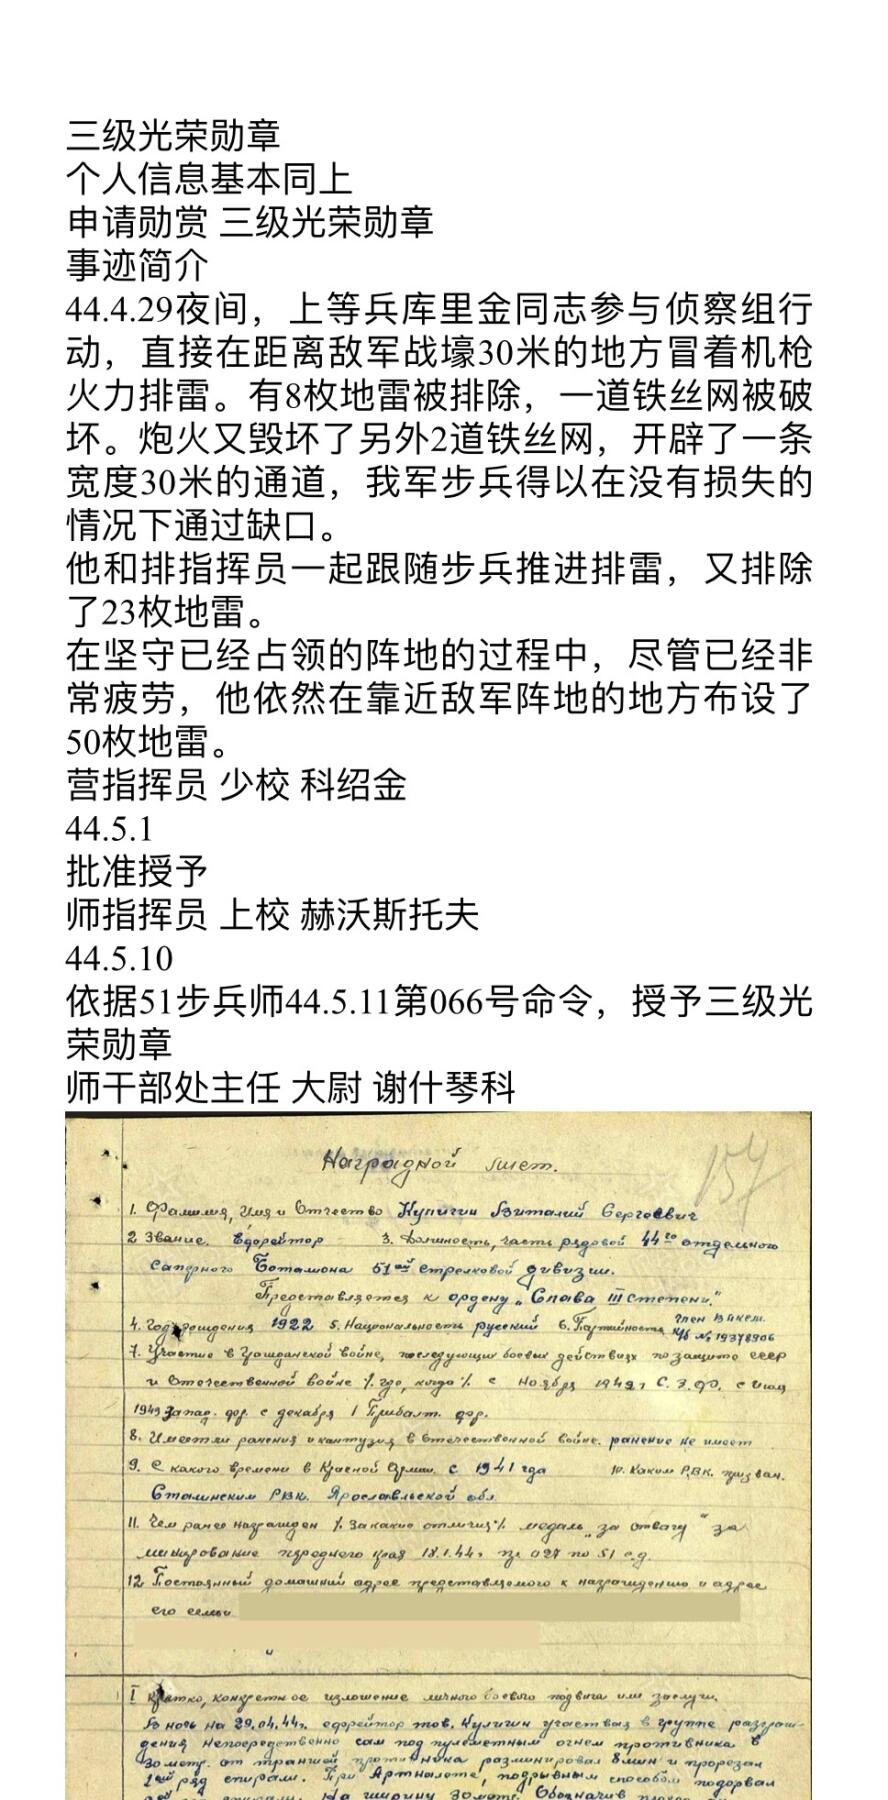 三级光荣勋章
个人信息基本同上
申请勋赏 三级光荣勋章
事迹简介
44.4.29夜间，上等兵库里金同志参与侦察组行
动，直接在距离敌军战壕30米的地方冒着机枪
火力排雷。有8枚地雷被排除，一道铁丝网被破
坏。炮火又毁坏了另外2道铁丝网，开辟了一条
宽度30米的通道，我军步兵得以在没有损失的
情况下通过缺口。
他和排指挥员一起跟随步兵推进排雷，又排除
了23枚地雷。
在坚守已经占领的阵地的过程中，尽管已经非
常疲劳，他依然在靠近敌军阵地的地方布设了
50枚地雷。
营指挥员 少校 科绍金
44.5.1
批准授予
师指挥员 上校 赫沃斯托夫
44.5.10
依据51步兵师44.5.11第066号命令，授予三级光
荣勋章
师干部处主任 大尉 谢什琴科
Наградной лист.
157
1. Фамилия, Имя и Отчество Кулигин Виталий Сергеевич
2 Звание. Ефрейтор 3. Должность, часть рядовой 44го отдельного
Саперного Баталиона 51ой стрелковой дивизии.
Представляется к ордену „Слава III степени."
4. Год рождения 1922 5. Национальность русский 6. Партийность член ВЛКСМ.
к/б № 19378906
7. Участие в Гражданской войне, последующих боевых действиях по защите СССР
и Отечественной войне /. где, когда /. с ноября 1942г С.З.Ф. с июля
1943 Запад. фр. с декабря 1 Прибалт. фр.
8. Имеет ли ранения и контузия в Отечественной войне. ранение не имеет
9. С какого времени в Красной Армии. с 1941 года 10. Каким РВК. призван.
Сталинским РВК. Ярославльской обл
11. Чем ранее награжден /. За какие отличия /. медаль „за отвагу" за
минирование переднего края 18.1.44г пр 027 по 51 с.д.
12 Постоянный домашний адрес представляемого к награждению и адрес
его семьи
I Кратко, конкретное изложение личного боевого подвига или заслуги.
В ночь на 29.04.44г. ефрейтор тов. Кулигин участвуя в группе разграж-
дения непосредственно сам под пулеметным огнем противника в
30 метр. от траншей противника разминировал 8 мин и прорезал
1ый ряд спирали. При Артналете, подрывным способом подорвал
на ширину 30 метр. Обозначив